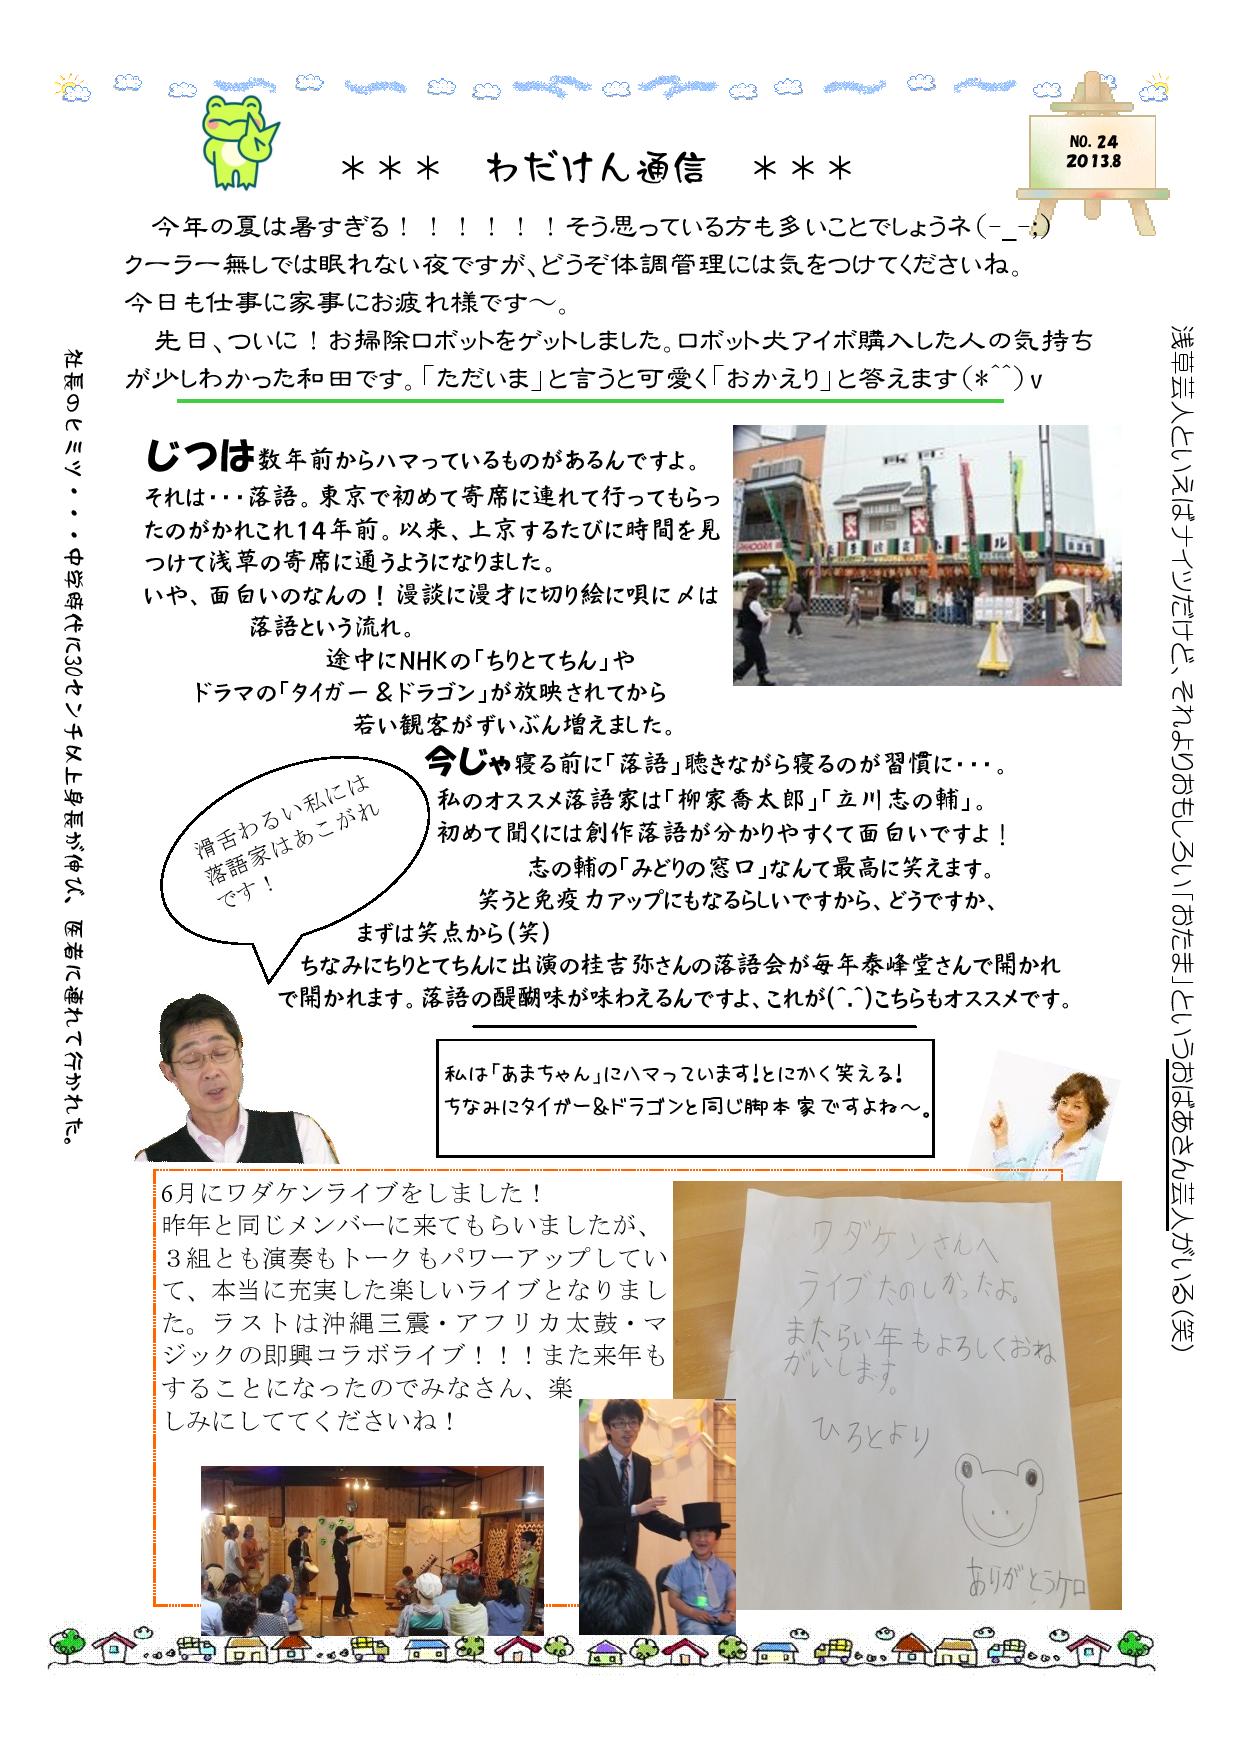 NO. 24
2013.8
＊＊＊　わだけん通信　＊＊＊
今年の夏は暑すぎる！！！！！！そう思っている方も多いことでしょうネ(-_-;)
クーラー無しでは眠れない夜ですが、どうぞ体調管理には気をつけてくださいね。
今日も仕事に家事にお疲れ様です～。
先日、ついに！お掃除ロボットをゲットしました。ロボット犬アイボ購入した人の気持ち
が少しわかった和田です。「ただいま」と言うと可愛く「おかえり」と答えます(*^^)v
じつは数年前からハマっているものがあるんですよ。
それは・・・落語。東京で初めて寄席に連れて行ってもらっ
たのがかれこれ14年前。以来、上京するたびに時間を見
つけて浅草の寄席に通うようになりました。
いや、面白いのなんの！漫談に漫才に切り絵に唄に〆は
落語という流れ。
途中にNHKの「ちりとてちん」や
ドラマの「タイガー＆ドラゴン」が放映されてから
若い観客がずいぶん増えました。
今じゃ寝る前に「落語」聴きながら寝るのが習慣に・・・。
私のオススメ落語家は「柳家喬太郎」「立川志の輔」。
初めて聞くには創作落語が分かりやすくて面白いですよ！
志の輔の「みどりの窓口」なんて最高に笑えます。
笑うと免疫力アップにもなるらしいですから、どうですか、
まずは笑点から(笑)
ちなみにちりとてちんに出演の桂吉弥さんの落語会が毎年泰峰堂さんで開かれ
で開かれます。落語の醍醐味が味わえるんですよ、これが(^.^)こちらもオススメです。
滑舌わるい私には
落語家はあこがれ
です！
私は「あまちゃん」にハマっています!とにかく笑える!
ちなみにタイガー&ドラゴンと同じ脚本家ですよね～。
社長のヒミツ・・・中学時代に30センチ以上身長が伸び、医者に連れて行かれた。
浅草芸人といえばナイツだけど、それよりおもしろい「おたま」というおばあさん芸人がいる(笑)
6月にワダケンライブをしました！
昨年と同じメンバーに来てもらいましたが、
３組とも演奏もトークもパワーアップしてい
て、本当に充実した楽しいライブとなりまし
た。ラストは沖縄三震・アフリカ太鼓・マ
ジックの即興コラボライブ！！！また来年も
することになったのでみなさん、楽
しみにしててくださいね！
ワダケンさんへ
ライブたのしかったよ。
またらい年もよろしくおね
がいします。
ひろとより
ありがとうケロ